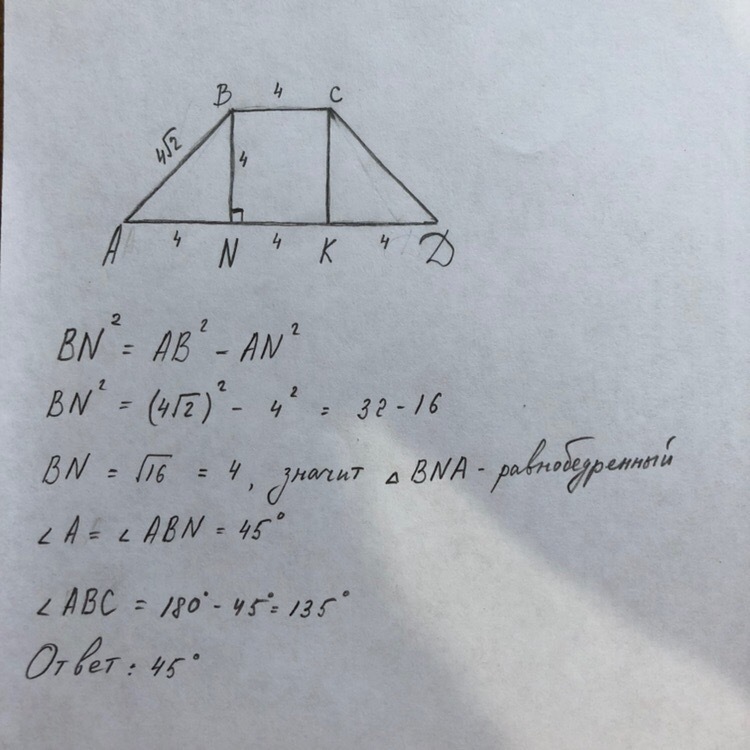 B 4 C
4√2
4
4 4 4
A N K D
BN² = AB² - AN²
BN² = (4√2)² - 4² = 32 - 16
BN = √16 = 4, значит △ BNA - равнобедренный
∠ A = ∠ ABN = 45°
∠ ABC = 180° - 45° = 135°
Ответ: 45°